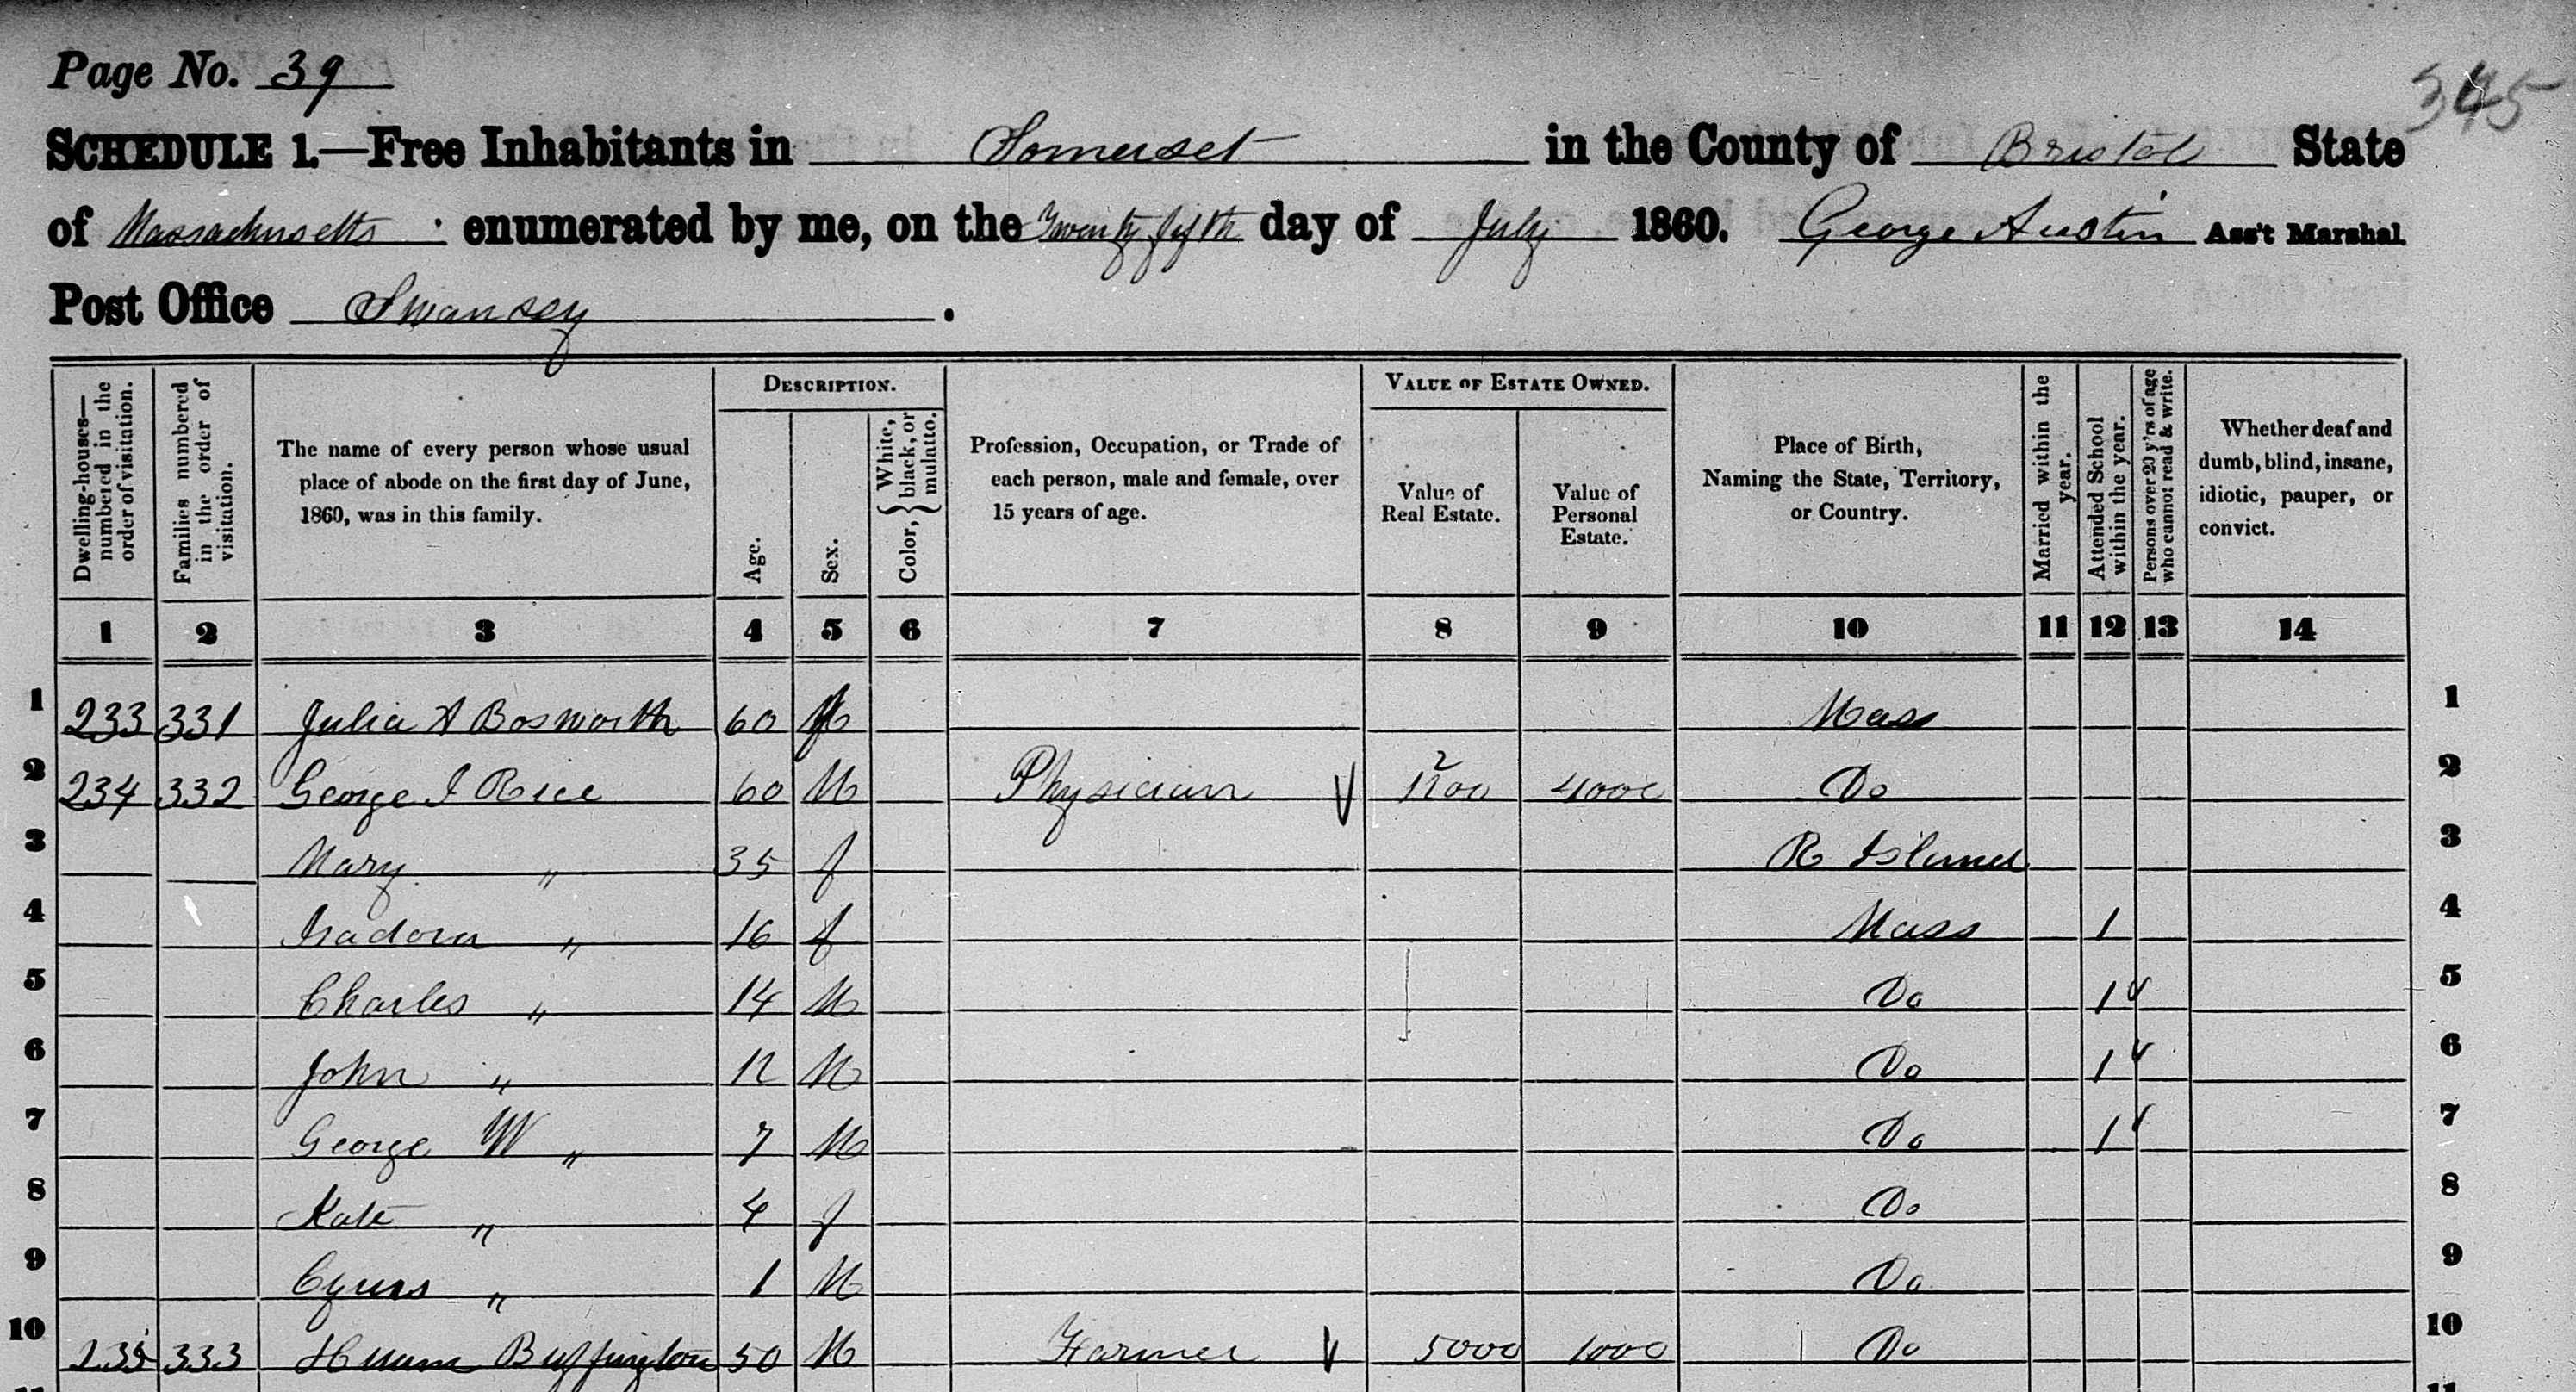 Page No. 39
345
SCHEDULE 1.—Free Inhabitants in Somerset in the County of Bristol State
of Massachusetts enumerated by me, on the Twenty fifth day of July 1860. George Austin Ass't Marshal.
Post Office Swansey.
Dwelling-houses—numbered in the order of visitation.
Families numbered in the order of visitation.
The name of every person whose usual place of abode on the first day of June, 1860, was in this family.
DESCRIPTION.
Age.
Sex.
Color, { White, black, or mulatto.
Profession, Occupation, or Trade of each person, male and female, over 15 years of age.
VALUE OF ESTATE OWNED.
Value of Real Estate.
Value of Personal Estate.
Place of Birth, Naming the State, Territory, or Country.
Married within the year.
Attended School within the year.
Persons over 20 y'rs of age who cannot read & write.
Whether deaf and dumb, blind, insane, idiotic, pauper, or convict.
1 2 3 4 5 6 7 8 9 10 11 12 13 14
1 233 331 Julia A Bosworth 60 f Mass 1
2 234 332 George I Rice 60 M Physician 1200 4000 Do 2
3 Mary " 35 f R Island 3
4 Isadora " 16 f Mass 1 4
5 Charles " 14 M Do 1 5
6 John " 12 M Do 1 6
7 George W " 7 M Do 1 7
8 Kate " 4 f Do 8
9 Cyrus " 1 M Do 9
10 235 333 Buffington 50 M Farmer 5000 1000 Do 10